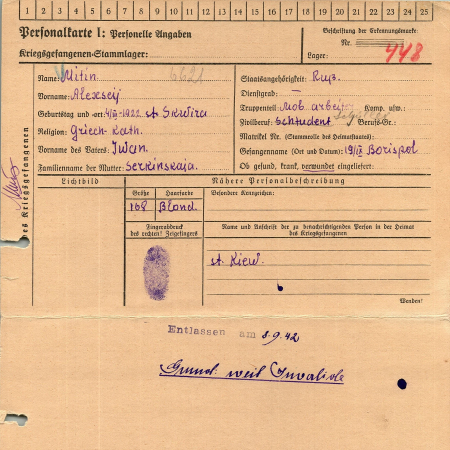 1 2 3 4 5 6 7 8 9 10 11 12 13 14 15 16 17 18 19 20 21 22 23 24 25
Personalkarte I: Personelle Angaben
Kriegsgefangenen-Stammlager:
Beschriftung der Erkennungsmarke
Nr.
448
Lager:
Name: Mitin
6621
Vorname: Alexseij
Geburtstag und -ort: 4/II-1922 st Skwira
Religion: Griech-Kath.
Vorname des Vaters: Iwan.
Familienname der Mutter: Serkinskaja.
Staatsangehörigkeit: Ruß.
Dienstgrad: —
Truppenteil: Mob. arbeiter Komp. usw.
Zivilberuf: Schtudent Berufs-Gr.:
Matrikel Nr. (Stammrolle des Heimatstaates):
Gefangennahme (Ort und Datum): 19/IX Borispol
Ob gesund, krank, verwundet eingeliefert:
des Kriegsgefangenen
Lichtbild
Nähere Personalbeschreibung
Größe
Haarfarbe
Besondere Kennzeichen:
168
Blond
Fingerabdruck
des rechten! Zeigefingers
Name und Anschrift der zu benachrichtigenden Person in der Heimat
des Kriegsgefangenen
st. Kiew.
Wenden!
Entlassen am 8.9.42
Grund: weil Invalide